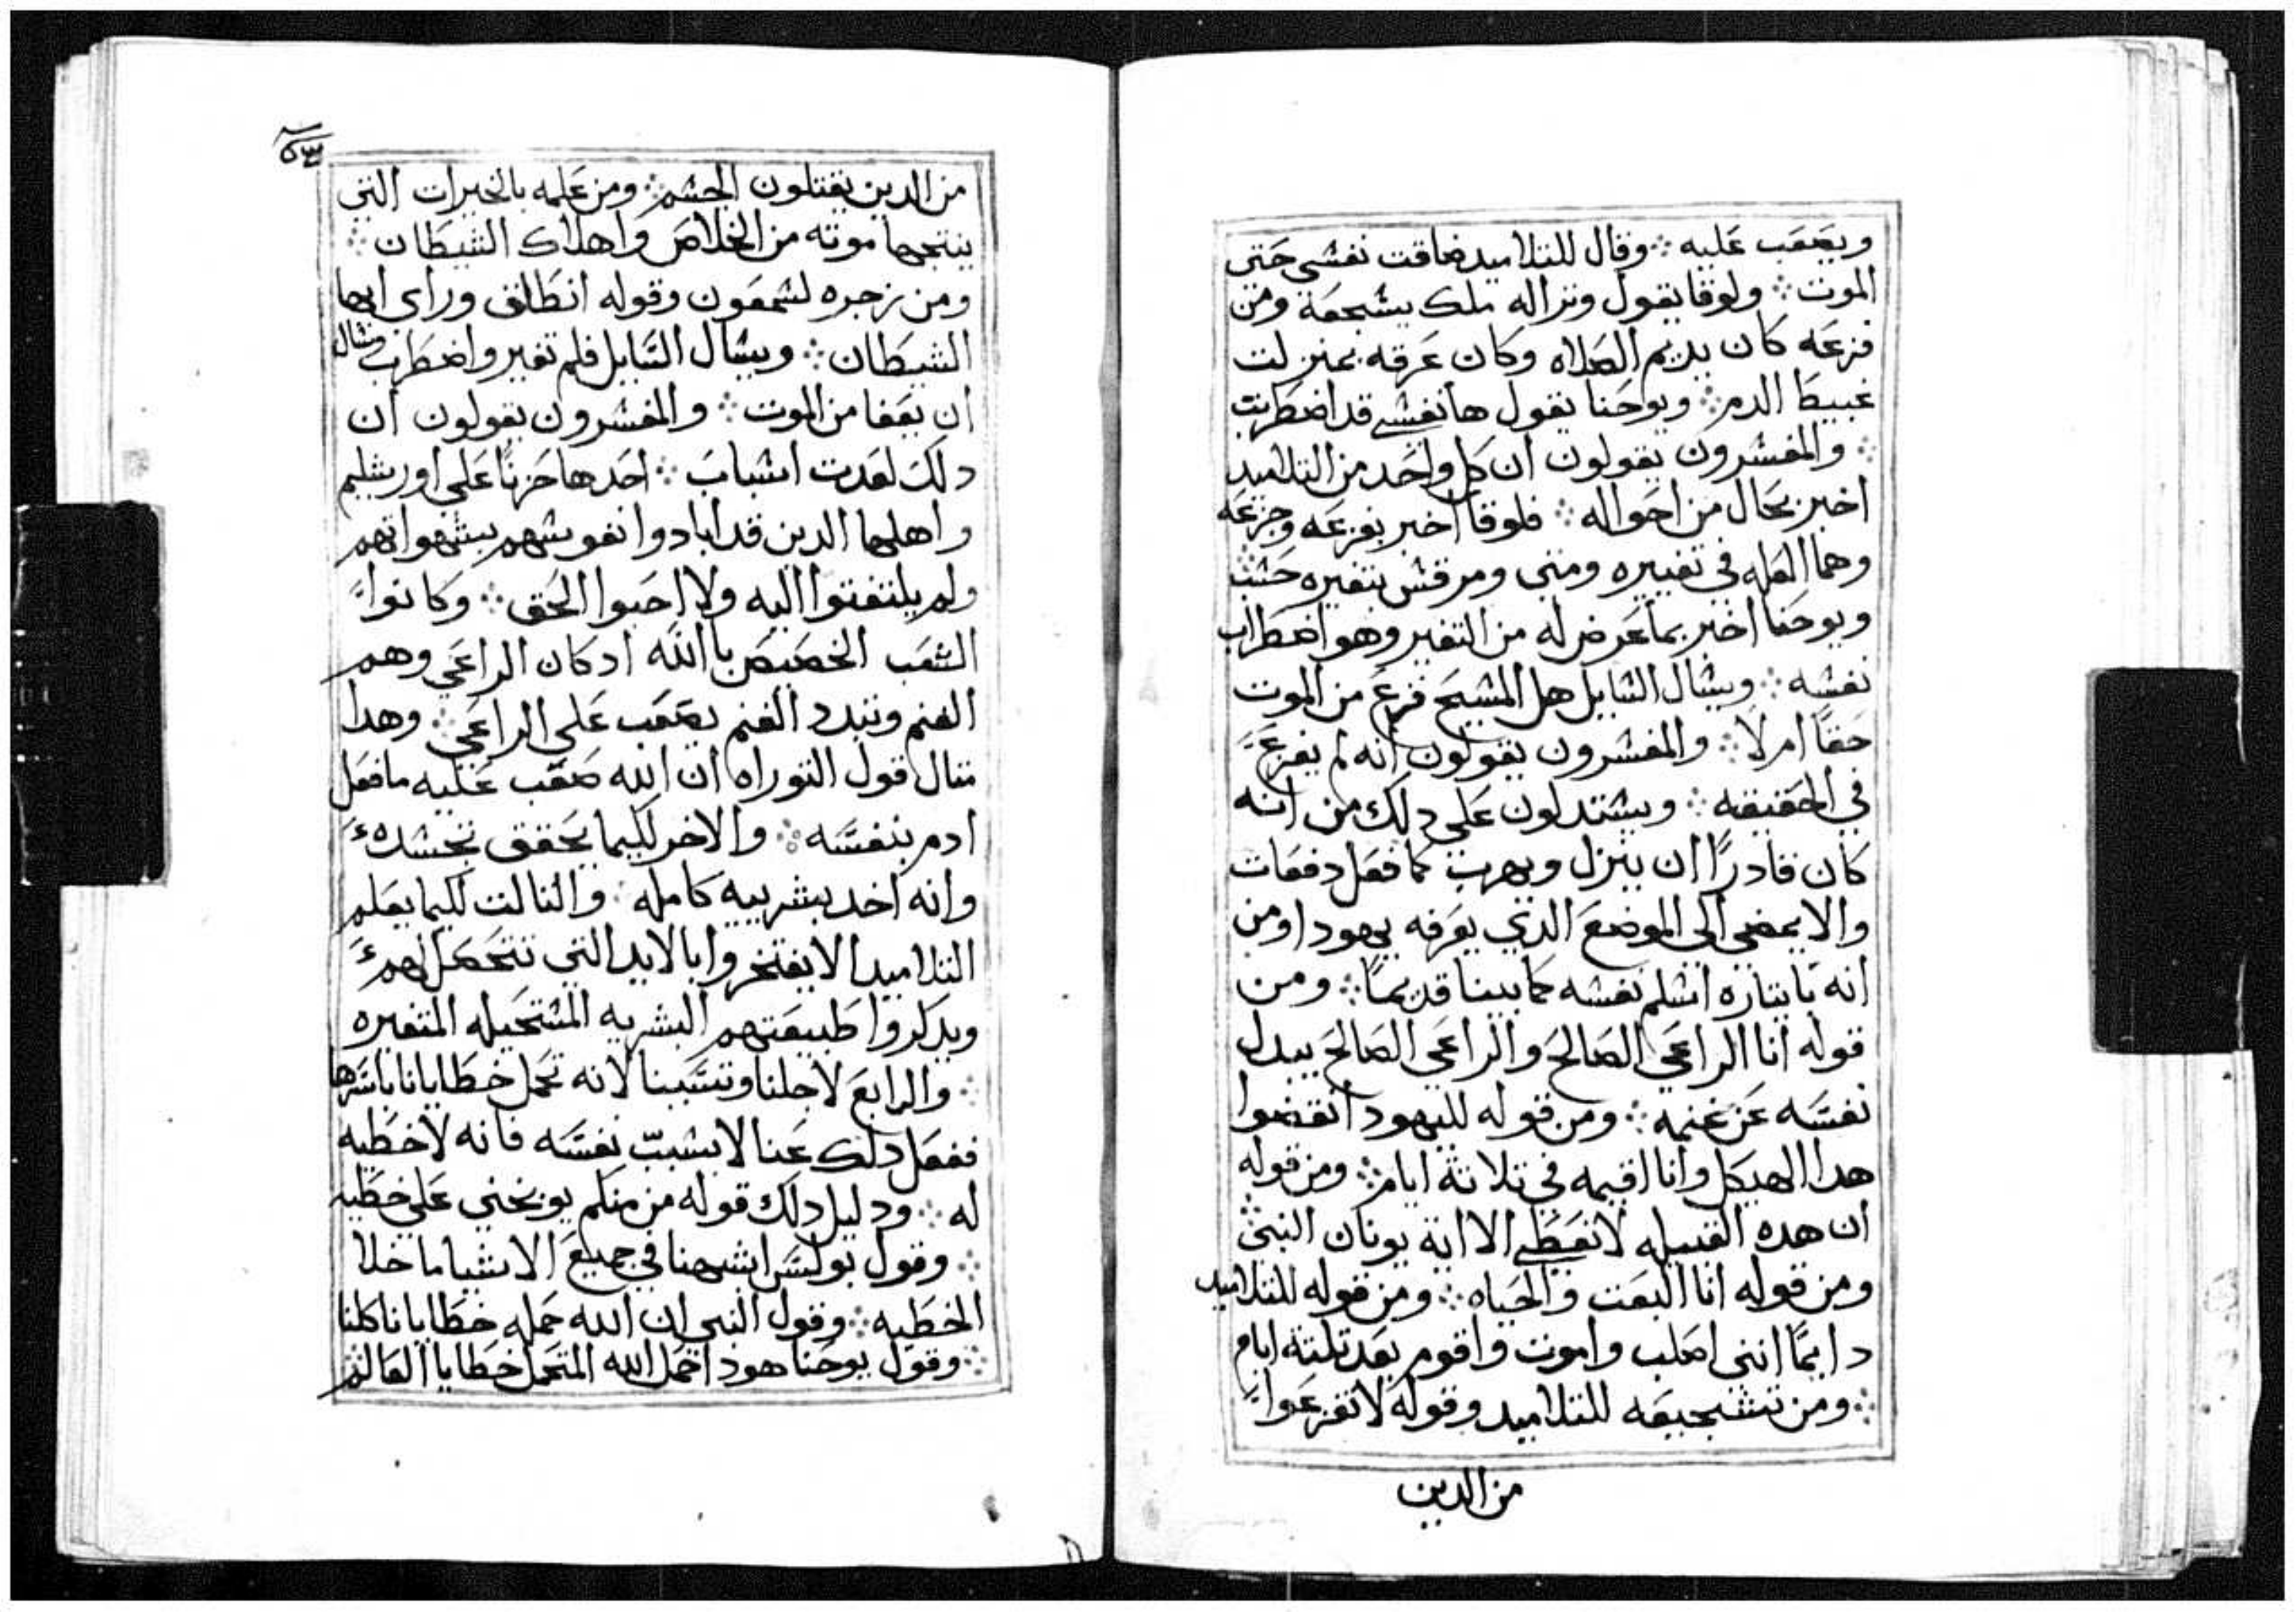 ويصعب عليه ⁘ وقال للتلاميد ضاقت نفسي حتي
الموت ⁘ ولوقا يقول وتراا له ملك يشجعه ومن
فزعه كان يديم الصلاه وكان عرقه بمنزلت
عبيط الدم ⁘ ويوحنا يقول ها نفسي قد اضطربت
⁘ والمفسرون يقولون ان كل واحد من التلاميد
اخبر بحال من احواله ⁘ فلوقا اخبر بفزعه وجزعه
وهما العله في تغييره ومتي ومرقس بتغيره حسب
ويوحنا اخبر بما عرض له من التغير وهو اضطراب
نفسه ⁘ ويسال السايل هل المسيح فزع من الموت
حقًا ام لا ⁘ والمفسرون يقولون انه لم يفزع
في الحقيقه ⁘ ويستدلون علي دلك من انه
كان قادرًا ان ينزل ويهرب كما فعل دفعات
والا يمضي الي الموضع الدي يعرفه يهودا ومن
انه بايتاره اسلم نفسه كما بينا قديمًا ⁘ ومن
قوله انا الراعي الصالح والراعي الصالح يبدل
نفسه عن غنمه ⁘ ومن قوله لليهود انقضوا
هدا الهيكل وانا اقيمه في تلاتة ايام ⁘ ومن قوله
ان هده القبيله لا تعطي الا اية يونان النبي
ومن قوله انا البعت والحياه ⁘ ومن قوله للتلاميد
دايمًا انني اصلب واموت واقوم بعد تلتة ايام
⁘ ومن تشجيعه للتلاميد وقوله لا تفزعوا
من الدين
٥٣
من الدين يقتلون الجسم ⁘ ومن علمه بالخيرات التي
ينتجها موته من الخلاص واهلاك الشيطان ⁘
ومن زجره لشمعون وقوله انطلق وراي ايها
الشيطان ⁘ ويسال السايل فلم تغير واضطرب وسال
ان يعفا من الموت ⁘ والمفسرون يقولون ان
دلك لعدت اسباب ⁘ احدها حزنًا علي اورشليم
واهلها الدين قد ابادوا نفوسهم بشهواتهم
ولم يلتفتوا اليه ولا احبوا الحق ⁘ وكانوا
الشعب الخصيص باالله اد كان الراعي وهم
الغنم وتبدد الغنم يصعب علي الراعي ⁘ وهدا
متال قول التوراه ان الله صعب عليه ما فعل
ادم بنفسه ⁘ والاخر لكيما يحقق تجسده
وانه اخد بشرييه كامله ⁘ والتالت لكيما يعلم
التلاميد الا يفتخروا بالايد التي تتحصل لهم
ويدكروا طبيعتهم البشريه المستحيله المتغيره
⁘ والرابع لاجلنا وتسببنا لانه تحمل خطايانا باسرها
ففعل دلك عنا لا بسبب نفسه فانه لا خطيه
له ⁘ ودليل دلك قوله من منكم يوبخني علي خطيه
⁘ وقول بولس اشبهنا في جميع الاشيا ما خلا
الخطيه ⁘ وقول النبي ان الله حمله خطايانا كلنا
⁘ وقول يوحنا هودا حمل الله المتحمل خطايا العالم